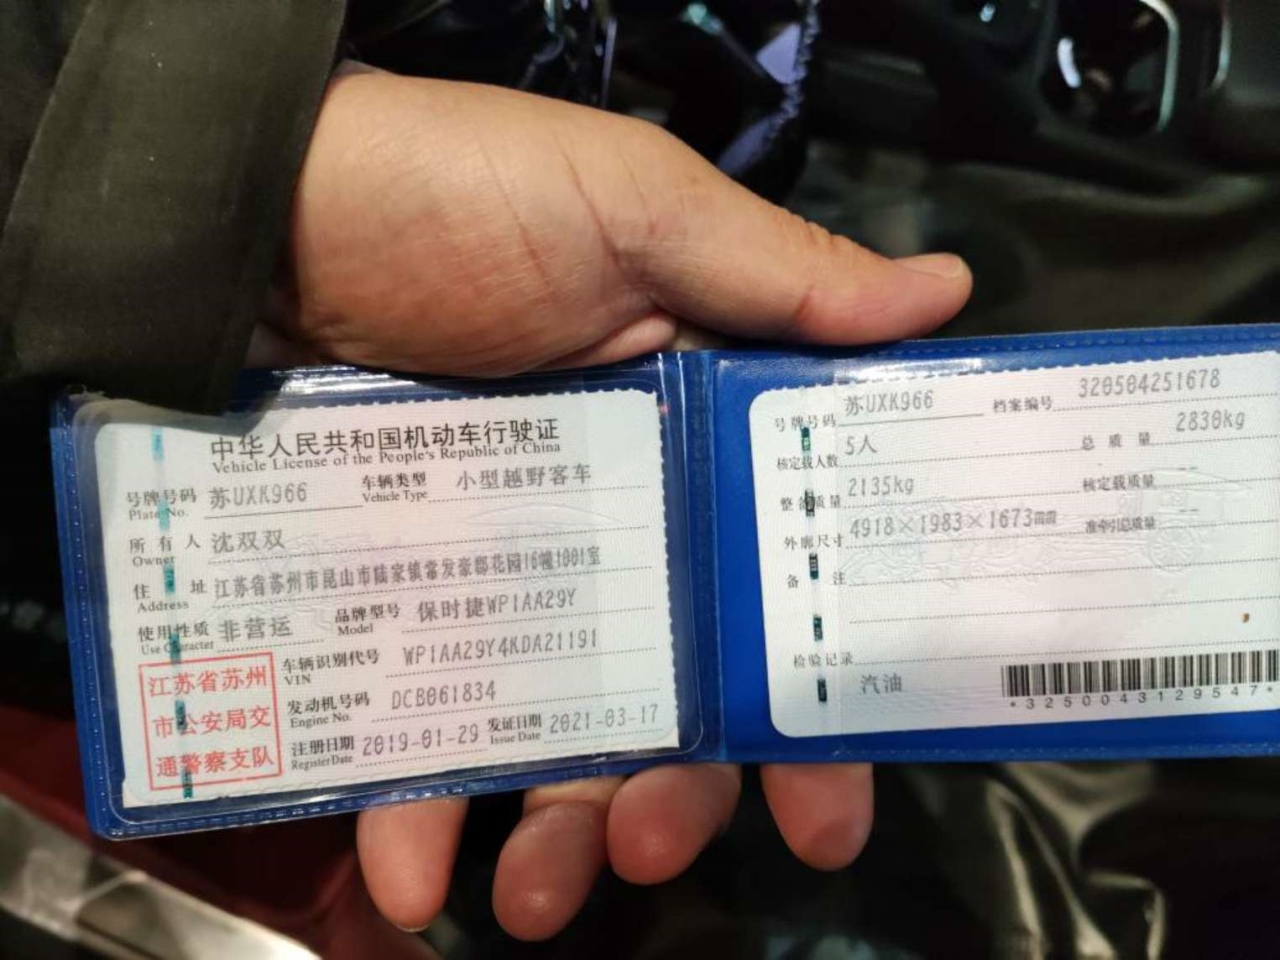 中华人民共和国机动车行驶证
Vehicle License of the People's Republic of China
号牌号码 苏UXK966 车辆类型 小型越野客车
Plate No. Vehicle Type
所有人 沈双双
Owner
住址 江苏省苏州市昆山市陆家镇常发豪郡花园16幢1001室
Address
使用性质 非营运 品牌型号 保时捷WP1AA29Y
Use Character Model
江苏省苏州
市公安局交
通警察支队
车辆识别代号 WP1AA29Y4KDA21191
VIN
发动机号码 DCB061834
Engine No.
注册日期 2019-01-29 发证日期 2021-03-17
Register Date Issue Date
号牌号码 苏UXK966 档案编号 320504251678
核定载人数 5人 总质量 2830kg
整备质量 2135kg 核定载质量 --
外廓尺寸 4918×1983×1673mm 准牵引总质量 --
备注
检验记录
汽油
*3250043129547*